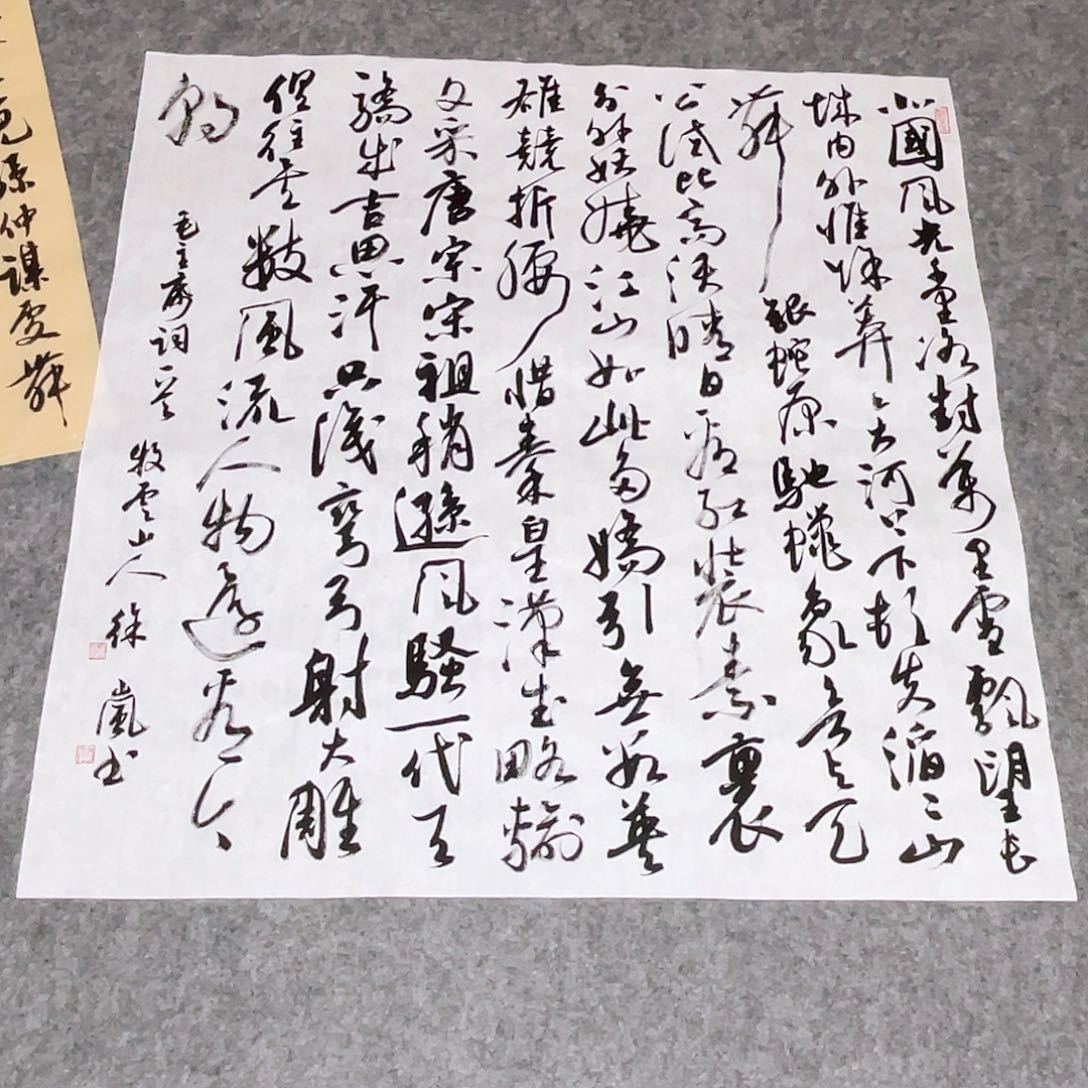 北國风光千里冰封萬里雪飄望长
城内外惟馀莽〻大河上下頓失滔〻山
舞銀蛇原馳蠟象欲与天
公試比高须晴日看红裝素裹
分外妖嬈江山如此多嬌引無数英
雄競折腰惜秦皇漢武略輸
文采唐宗宋祖稍遜风騷一代天
驕成吉思汗只识彎弓射大雕
俱往矣數風流人物還看今
朝
毛主席词一首 牧雲山人 徐嵐书
孫仲謀處舞